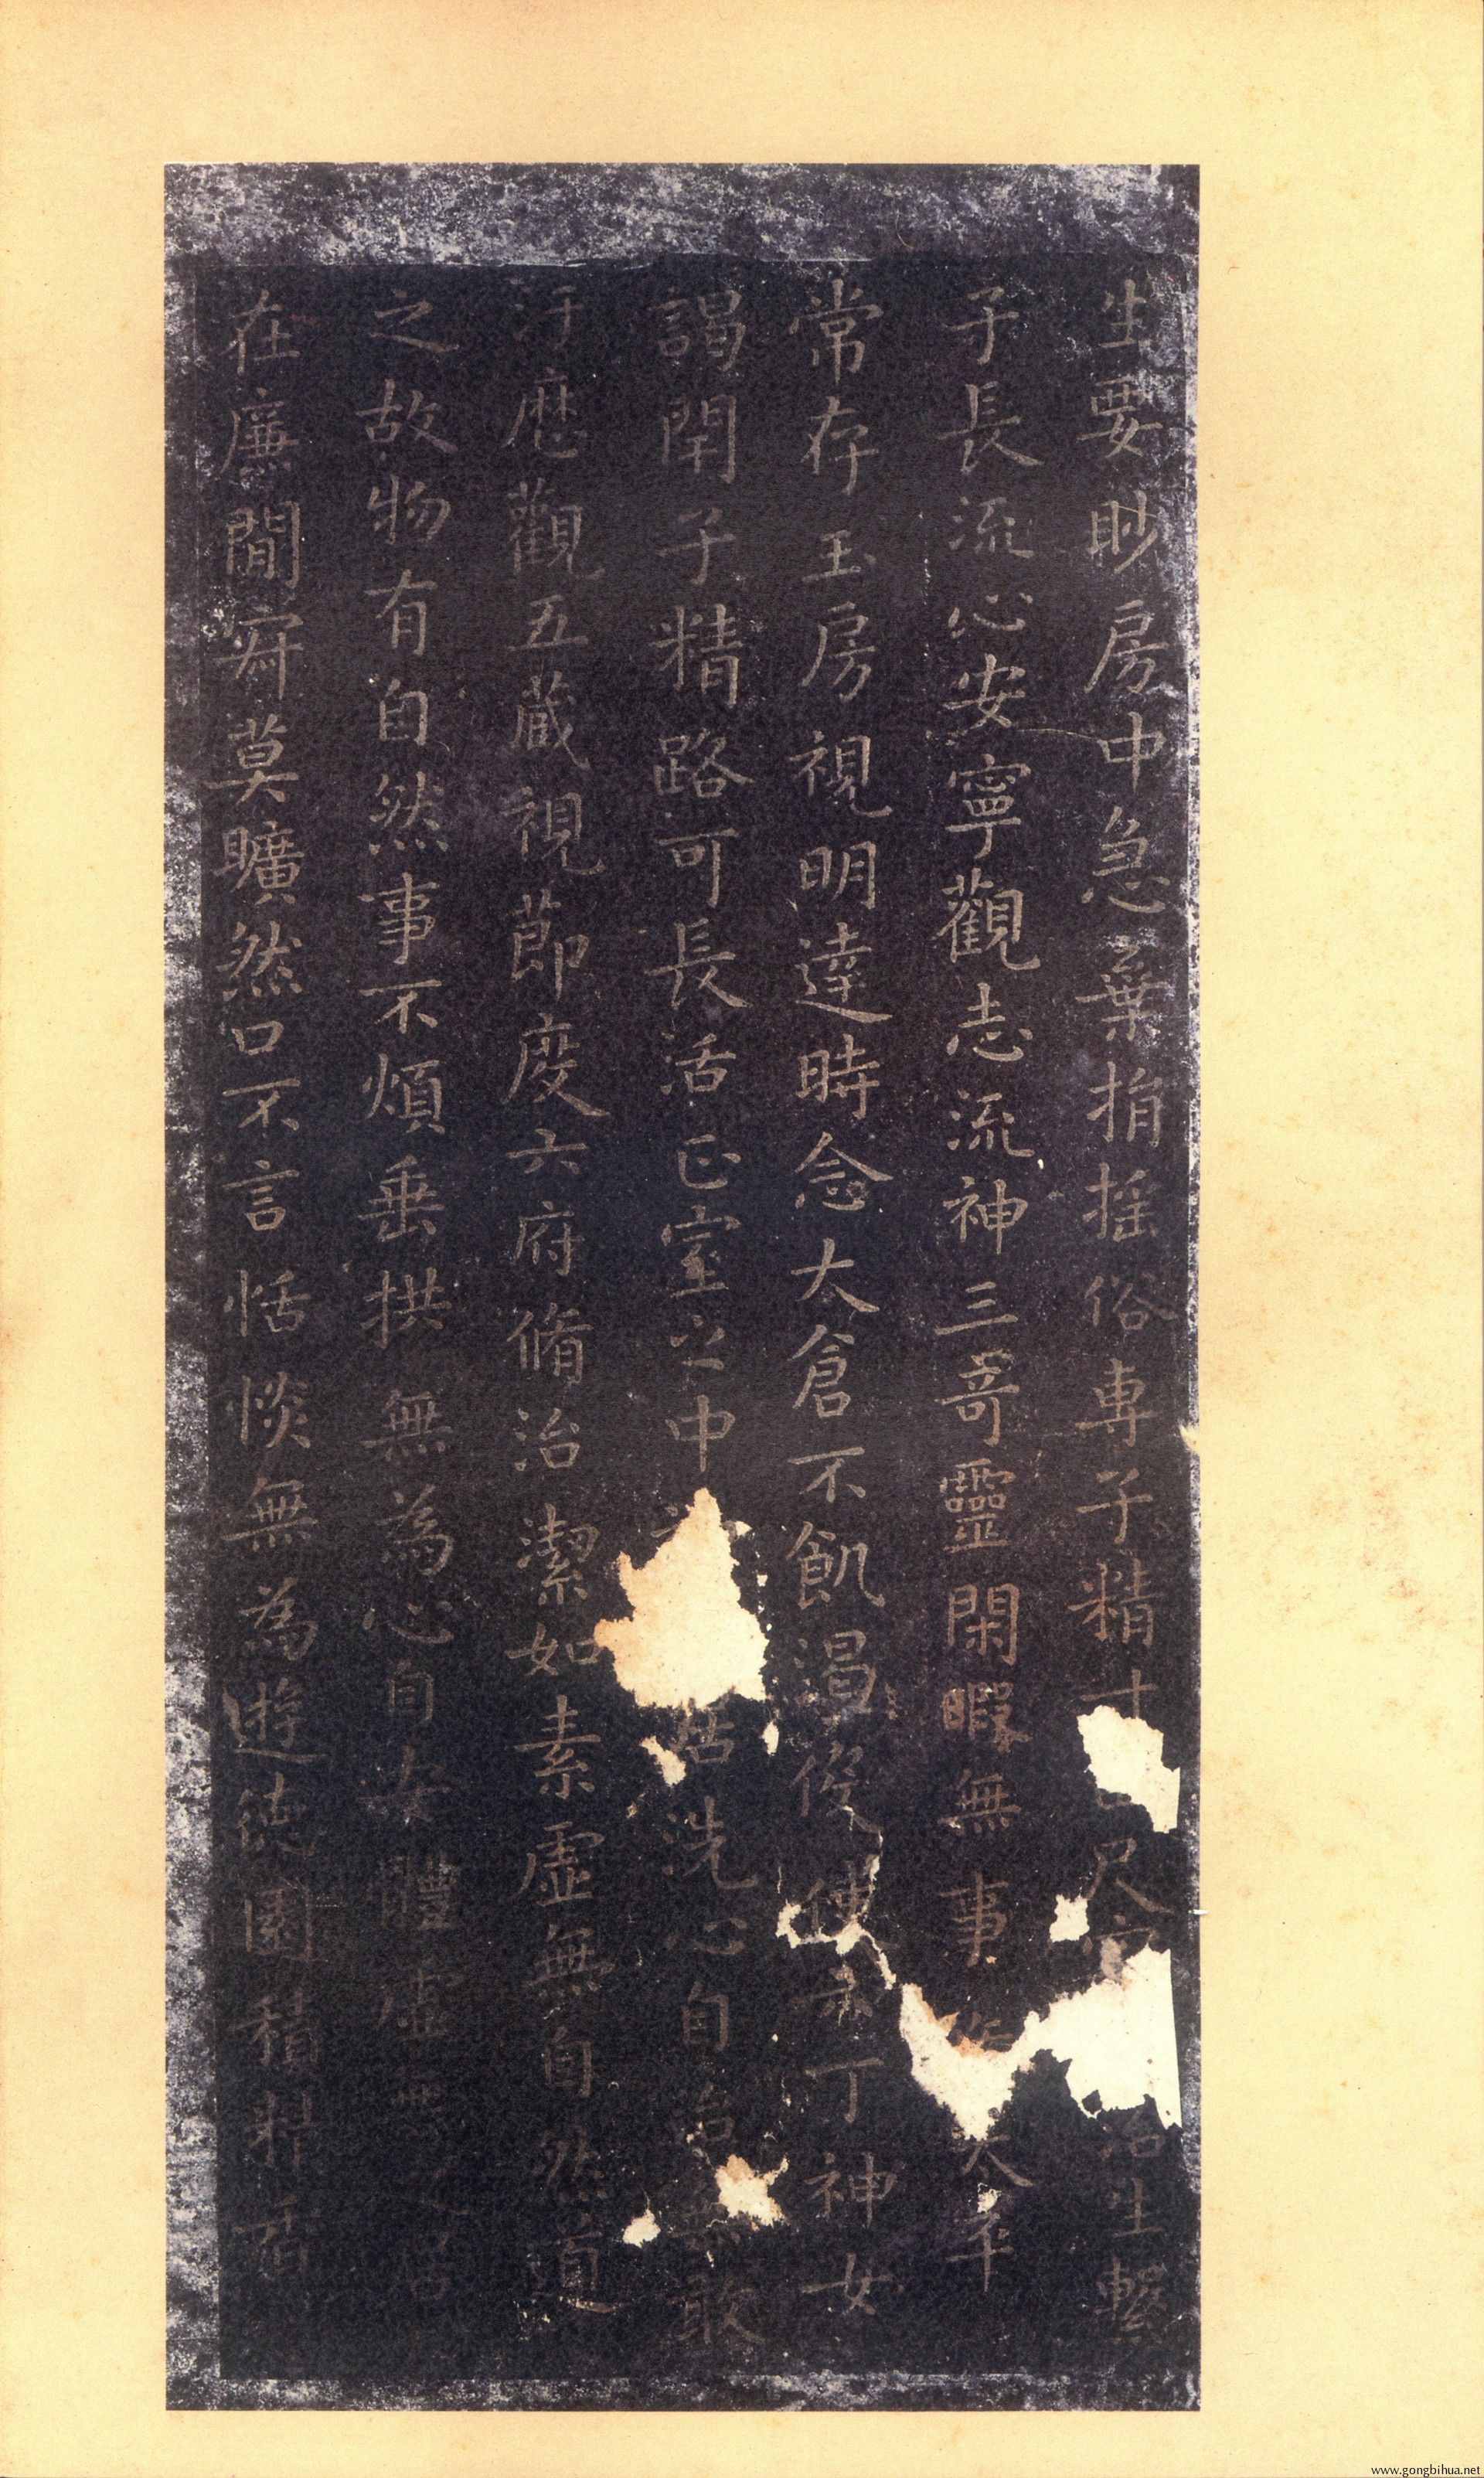 生要眇房中急棄捐搖俗專子精寸尺治生繫
子長流心安寧觀志流神三奇靈閑暇無事大平
常存玉房視明達時念大倉不飢渴役使六丁神女
謁閇子精路可長活正室之中居洗心自治無敢
汙歷觀五藏視莭度六府脩治潔如素虛無自然道
之故物有自然事不煩垂拱無為心自安體虛之居
在廉閒寂莫曠然口不言恬惔無為遊德園積精香
www.gongbihua.net